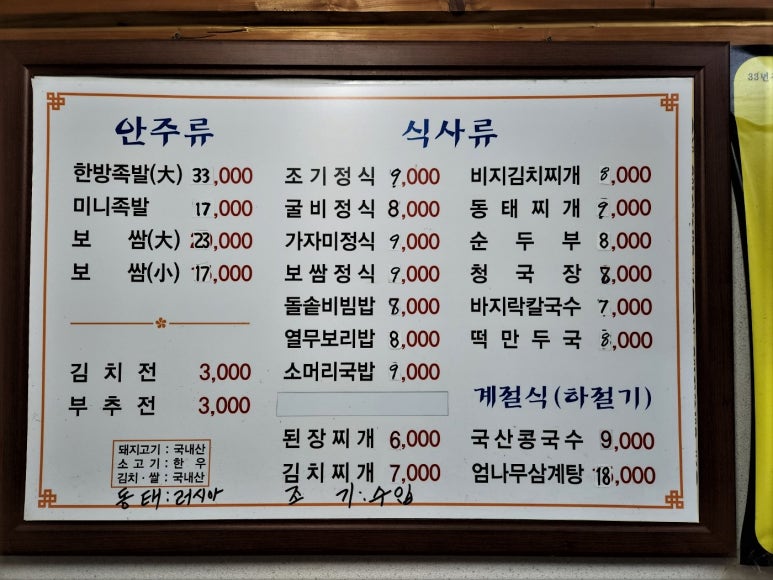 안주류
한방족발(大) 33,000
미니족발 17,000
보 쌈(大) 23,000
보 쌈(小) 17,000
김 치 전 3,000
부 추 전 3,000
돼지고기 : 국내산
소고기 : 한 우
김치 · 쌀 : 국내산
동태 : 러시아
식사류
조 기 정 식 9,000
굴 비 정 식 8,000
가자미정식 9,000
보 쌈 정 식 9,000
돌솥비빔밥 8,000
열무보리밥 8,000
소머리국밥 9,000
된 장 찌 개 6,000
김 치 찌 개 7,000
조 기 : 수입
비지김치찌개 8,000
동 태 찌 개 9,000
순 두 부 8,000
청 국 장 8,000
바지락칼국수 7,000
떡 만 두 국 8,000
계절식(하절기)
국산콩국수 9,000
엄나무삼계탕 18,000